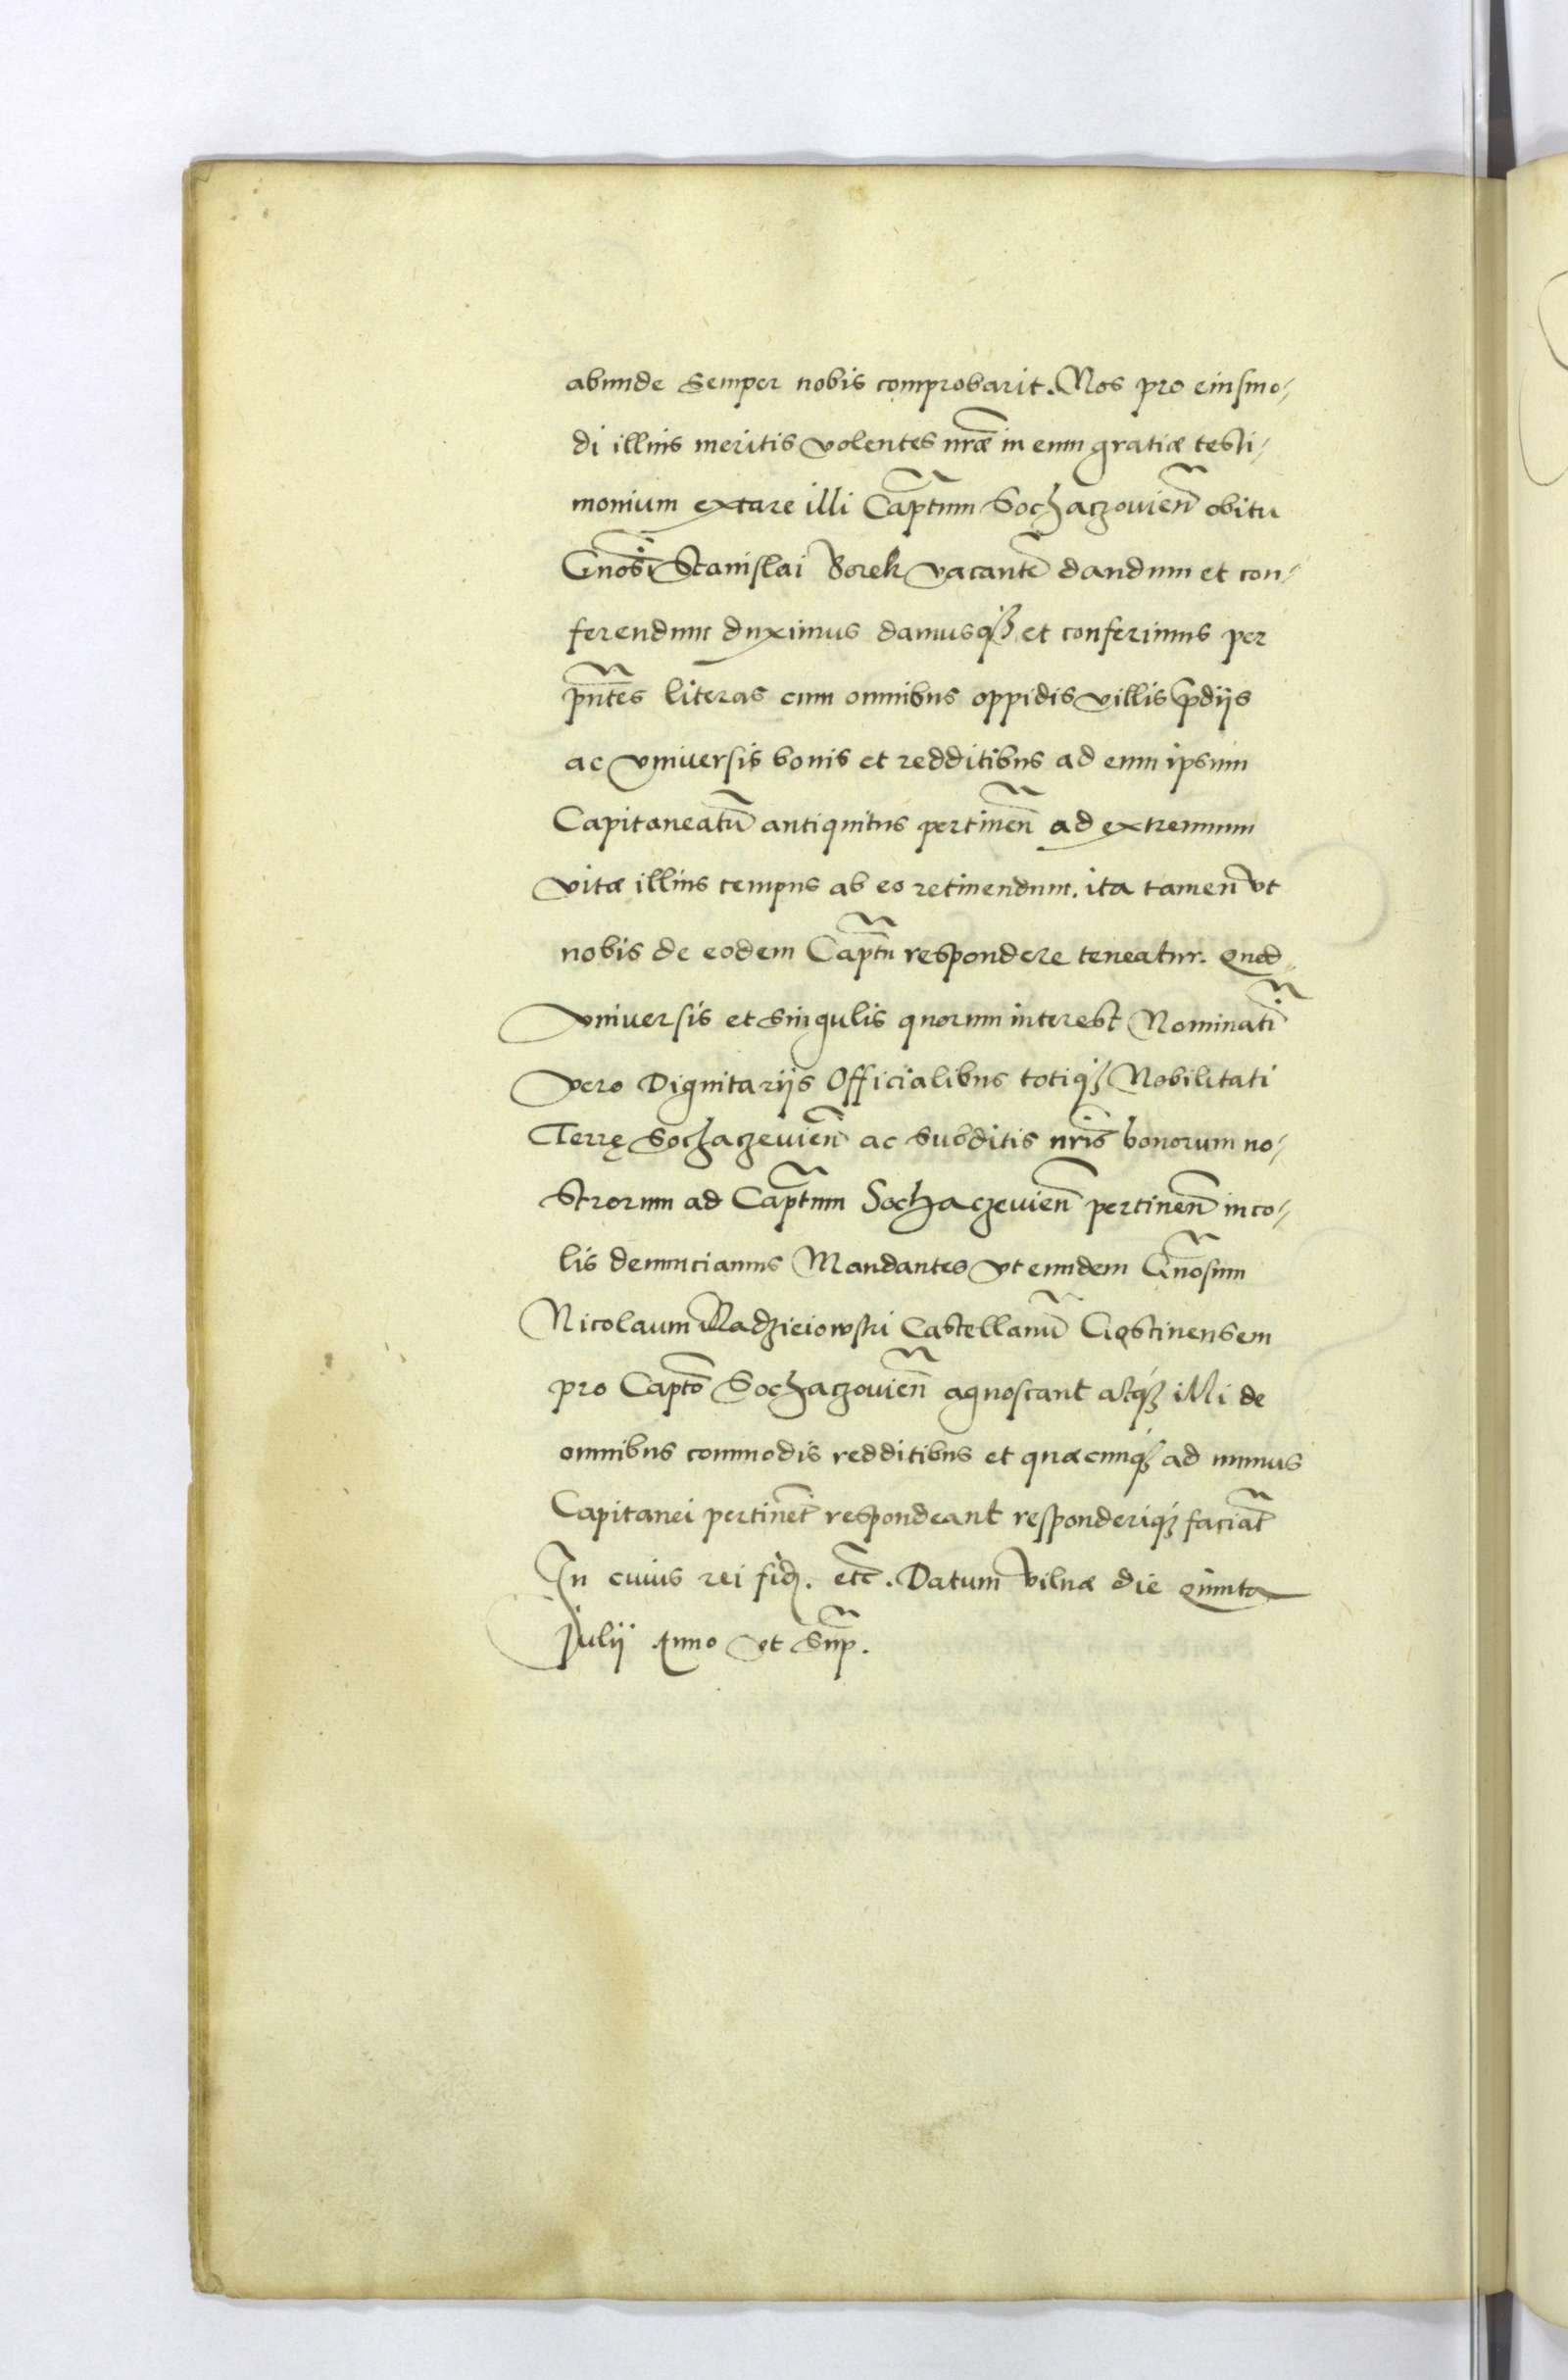 abunde semper nobis comprobarit. Nos pro eiusmo-
di illius meritis volentes nr̃æ in eum gratiæ testi-
monium extare illi Capt̃um Sochaczouieñ obitu
Gnõsi Stanislai Borek vacantẽ dandum et con-
ferendum duximus damusq̃ et conferimus per
pñtes literas cum omnibus oppidis villis p̃dijs
ac vniuersis bonis et redditibus ad eum ipsum
Capitaneatũ antiquitus pertineñ ad extremum
vitæ illius tempus ab eo retinendum. ita tamen vt
nobis de eodem Capt̃u respondere teneatur. Quod
vniuersis et singulis quorum interest Nominatĩ
vero Dignitarijs Officialibus totiq̃ Nobilitati
Terrę Sochaczeuieñ ac subditis nr̃is bonorum no-
strorum ad Capt̃um Sochaczeuieñ pertineñ inco-
lis denunciamus Mandantes vt eundem Gnõsum
Nicolaum Radzieiowski Castellanũ Gostinensem
pro Captõ Sochaczouieñ agnoscant atq̃ illi de
omnibus commodis redditibus et quæcunq̃ ad munus
Capitanei pertinẽt respondeant responderiq̃ faciãt
In cuius rei fid. etc̃. Datum Vilnæ die Quinta
Julij Anno vt sup̃.